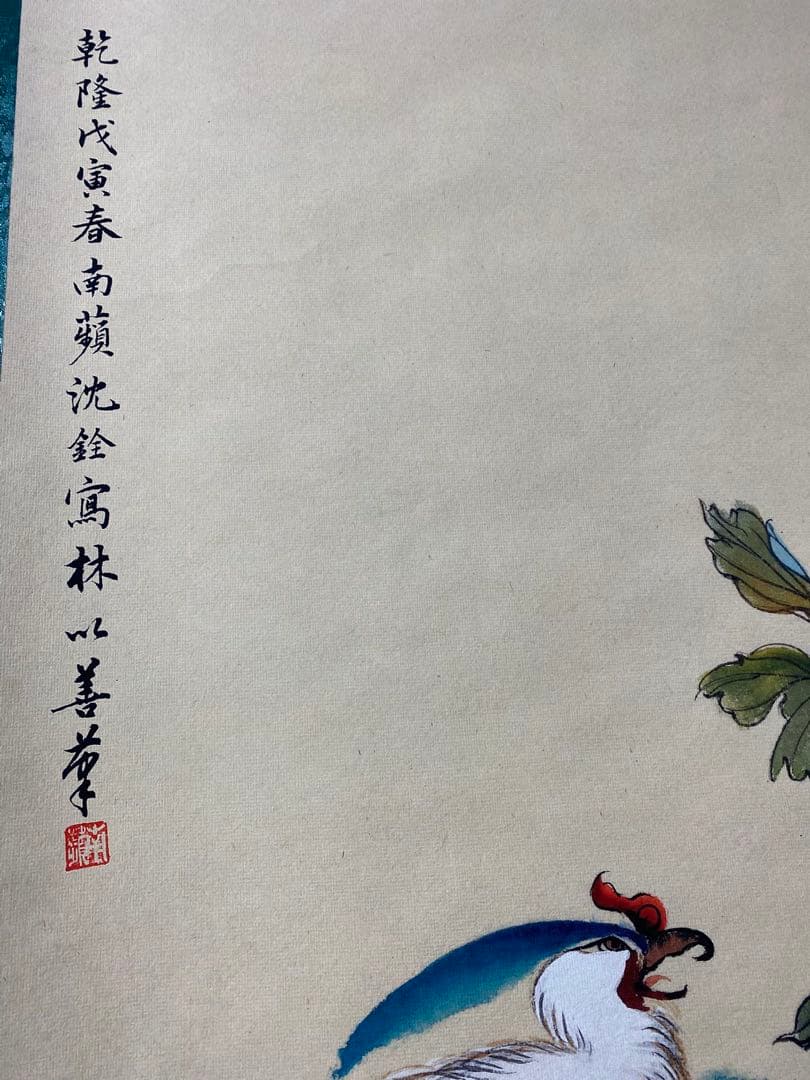 乾隆戊寅春南蘋沈銓寫林以善筆
南蘋